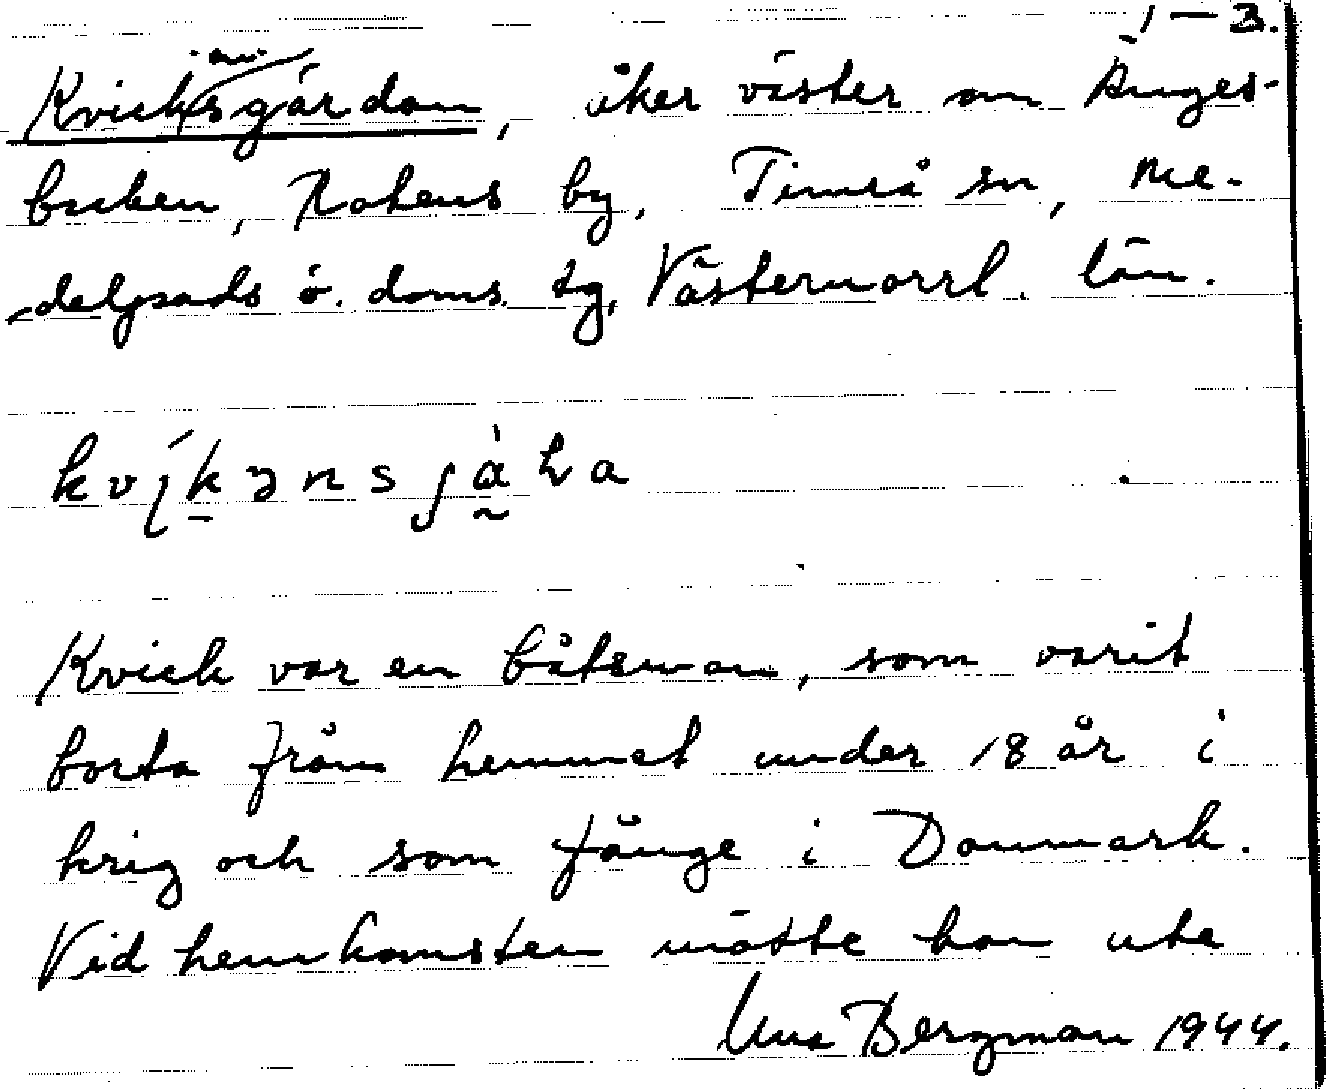 1 – 3.
Kvicksgårdan, åker väster om Änges-
backen, Rotens by, Timrå sn, Me-
delpads ö. doms. tg, Västernorrl. län.
Kvick var en båtsman, som varit
borta från hemmet under 18 år i
krig och som fånge i Danmark.
Vid hemkomsten mötte han ute
Bergman 1944.